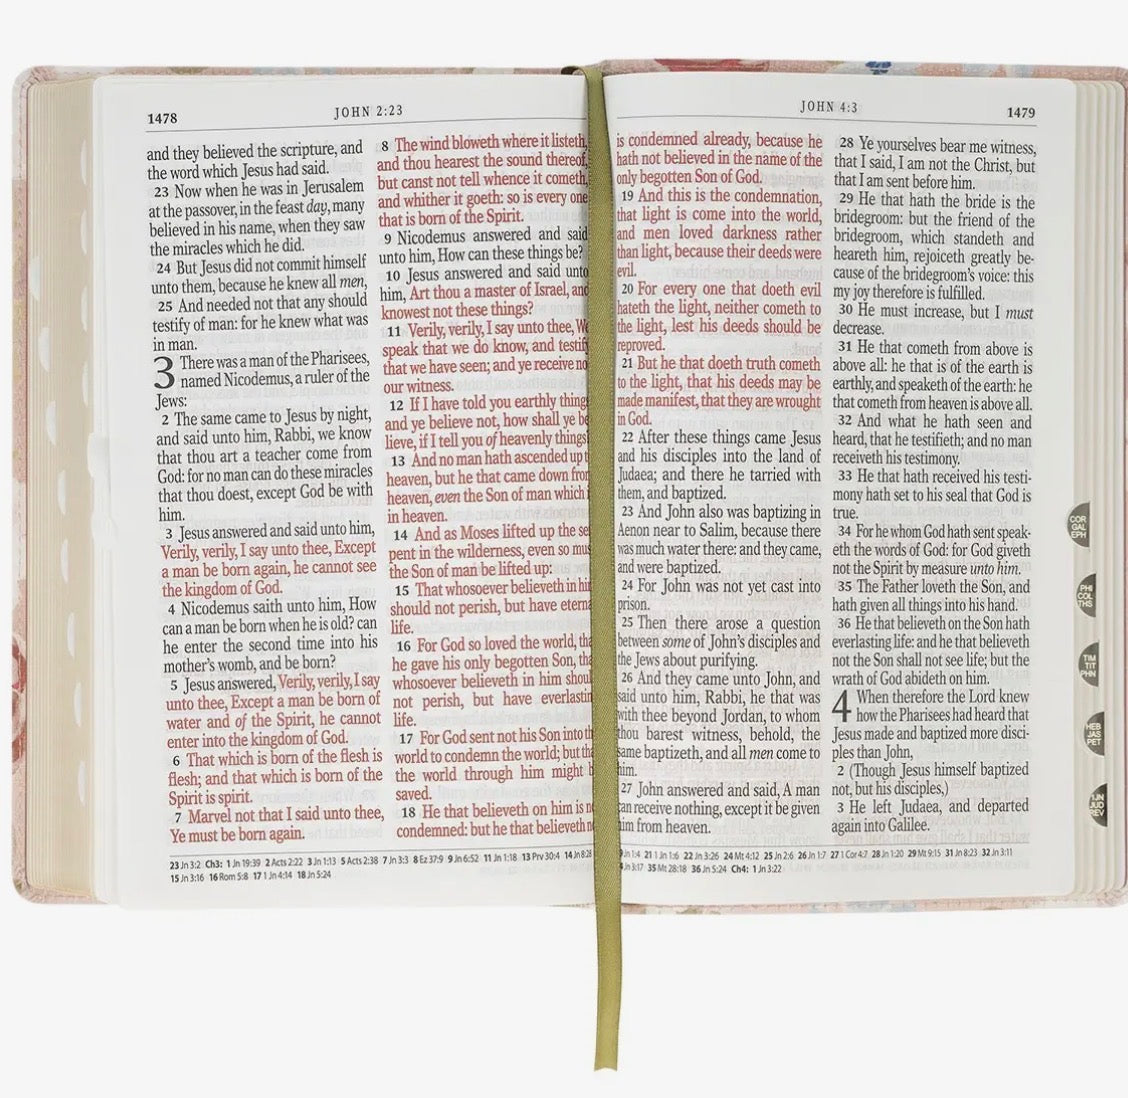 1478
JOHN 2:23
and they believed the scripture, and
the word which Jesus had said.
23 Now when he was in Jerusalem
at the passover, in the feast day, many
believed in his name, when they saw
the miracles which he did.
24 But Jesus did not commit himself
unto them, because he knew all men,
25 And needed not that any should
testify of man: for he knew what was
in man.
3 There was a man of the Pharisees,
named Nicodemus, a ruler of the
Jews:
2 The same came to Jesus by night,
and said unto him, Rabbi, we know
that thou art a teacher come from
God: for no man can do these miracles
that thou doest, except God be with
him.
3 Jesus answered and said unto him,
Verily, verily, I say unto thee, Except
a man be born again, he cannot see
the kingdom of God.
4 Nicodemus saith unto him, How
can a man be born when he is old? can
he enter the second time into his
mother's womb, and be born?
5 Jesus answered, Verily, verily, I say
unto thee, Except a man be born of
water and of the Spirit, he cannot
enter into the kingdom of God.
6 That which is born of the flesh is
flesh; and that which is born of the
Spirit is spirit.
7 Marvel not that I said unto thee,
Ye must be born again.
8 The wind bloweth where it listeth,
and thou hearest the sound thereof,
but canst not tell whence it cometh,
and whither it goeth: so is every one
that is born of the Spirit.
9 Nicodemus answered and said
unto him, How can these things be?
10 Jesus answered and said unto
him, Art thou a master of Israel, and
knowest not these things?
11 Verily, verily, I say unto thee, We
speak that we do know, and testify
that we have seen; and ye receive no
our witness.
12 If I have told you earthly things
and ye believe not, how shall ye be
lieve, if I tell you of heavenly things
13 And no man hath ascended up t
heaven, but he that came down from
heaven, even the Son of man which i
in heaven.
14 And as Moses lifted up the se
pent in the wilderness, even so mus
the Son of man be lifted up:
15 That whosoever believeth in hi
should not perish, but have eterna
life.
16 For God so loved the world, tha
he gave his only begotten Son, tha
whosoever believeth in him shoul
not perish, but have everlastin
life.
17 For God sent not his Son into th
world to condemn the world; but tha
the world through him might b
saved.
18 He that believeth on him is n
condemned: but he that believeth n
23 Jn 3:2 Ch3: 1 Jn 19:39 2 Acts 2:22 3 Jn 1:13 5 Acts 2:38 7 Jn 3:3 8 Ez 37:9 9 Jn 6:52 11 Jn 1:18 13 Prv 30:4 14 Jn 8:28
15 Jn 3:16 16 Rom 5:8 17 1 Jn 4:14 18 Jn 5:24
JOHN 4:3
1479
is condemned already, because he
hath not believed in the name of the
only begotten Son of God.
19 And this is the condemnation,
that light is come into the world,
and men loved darkness rather
than light, because their deeds were
evil.
20 For every one that doeth evil
hateth the light, neither cometh to
the light, lest his deeds should be
reproved.
21 But he that doeth truth cometh
to the light, that his deeds may be
made manifest, that they are wrought
in God.
22 After these things came Jesus
and his disciples into the land of
Judaea; and there he tarried with
them, and baptized.
23 And John also was baptizing in
Aenon near to Salim, because there
was much water there: and they came,
and were baptized.
24 For John was not yet cast into
prison.
25 Then there arose a question
between some of John's disciples and
the Jews about purifying.
26 And they came unto John, and
said unto him, Rabbi, he that was
with thee beyond Jordan, to whom
thou barest witness, behold, the
same baptizeth, and all men come to
him.
27 John answered and said, A man
can receive nothing, except it be given
him from heaven.
28 Ye yourselves bear me witness,
that I said, I am not the Christ, but
that I am sent before him.
29 He that hath the bride is the
bridegroom: but the friend of the
bridegroom, which standeth and
heareth him, rejoiceth greatly be-
cause of the bridegroom's voice: this
my joy therefore is fulfilled.
30 He must increase, but I must
decrease.
31 He that cometh from above is
above all: he that is of the earth is
earthly, and speaketh of the earth: he
that cometh from heaven is above all.
32 And what he hath seen and
heard, that he testifieth; and no man
receiveth his testimony.
33 He that hath received his testi-
mony hath set to his seal that God is
true.
34 For he whom God hath sent speak-
eth the words of God: for God giveth
not the Spirit by measure unto him.
35 The Father loveth the Son, and
hath given all things into his hand.
36 He that believeth on the Son hath
everlasting life: and he that believeth
not the Son shall not see life; but the
wrath of God abideth on him.
4 When therefore the Lord knew
how the Pharisees had heard that
Jesus made and baptized more disci-
ples than John,
2 (Though Jesus himself baptized
not, but his disciples,)
3 He left Judaea, and departed
again into Galilee.
Jn 1:4 21 1 Jn 1:6 22 Jn 3:26 24 Mt 4:12 25 Jn 2:6 26 Jn 1:7 27 1 Cor 4:7 28 Jn 1:20 29 Mt 9:15 31 Jn 8:23 32 Jn 3:11
Jn 3:17 35 Mt 28:18 36 Jn 5:24 Ch4: 1 Jn 3:22
COR
GAL
EPH
PHI
COL
THS
TIM
TIT
PHN
HEB
JAS
PET
JUN
JUD
REV